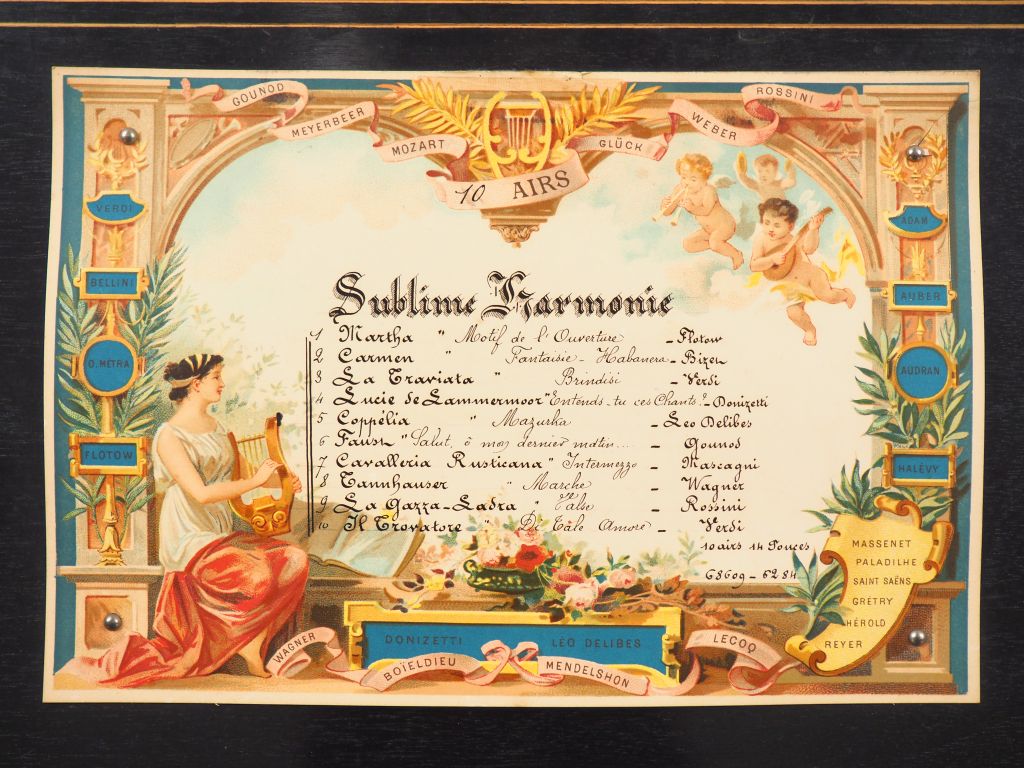 GOUNOD
MEYERBEER
MOZART
GLÜCK
WEBER
ROSSINI
10 AIRS
VERDI
BELLINI
O. MÉTRA
FLOTOW
ADAM
AUBER
AUDRAN
HALÉVY
Sublime Harmonie
1 Martha " Motif de l'Ouverture - Flotow
2 Carmen " Fantaisie - Habanera - Bizet
3 La Traviata " Brindisi - Verdi
4 Lucie de Lammermoor "Entends-tu ces Chants? - Donizetti
5 Coppélia " Mazurka - Leo Delibes
6 Faust " Salut, ô mon dernier matin... - Gounod
7 Cavalleria Rusticana " Intermezzo - Mascagni
8 Tannhauser " Marche - Wagner
9 La Gazza-Ladra " Valse - Rossini
10 Il Trovatore " Di Tale Amore - Verdi
10 airs 14 Pouces
68609 - 6284
MASSENET
PALADILHE
SAINT SAËNS
GRÉTRY
HÉROLD
REYER
DONIZETTI
LÉO DELIBES
WAGNER
BOÏELDIEU
MENDELSHON
LECOQ